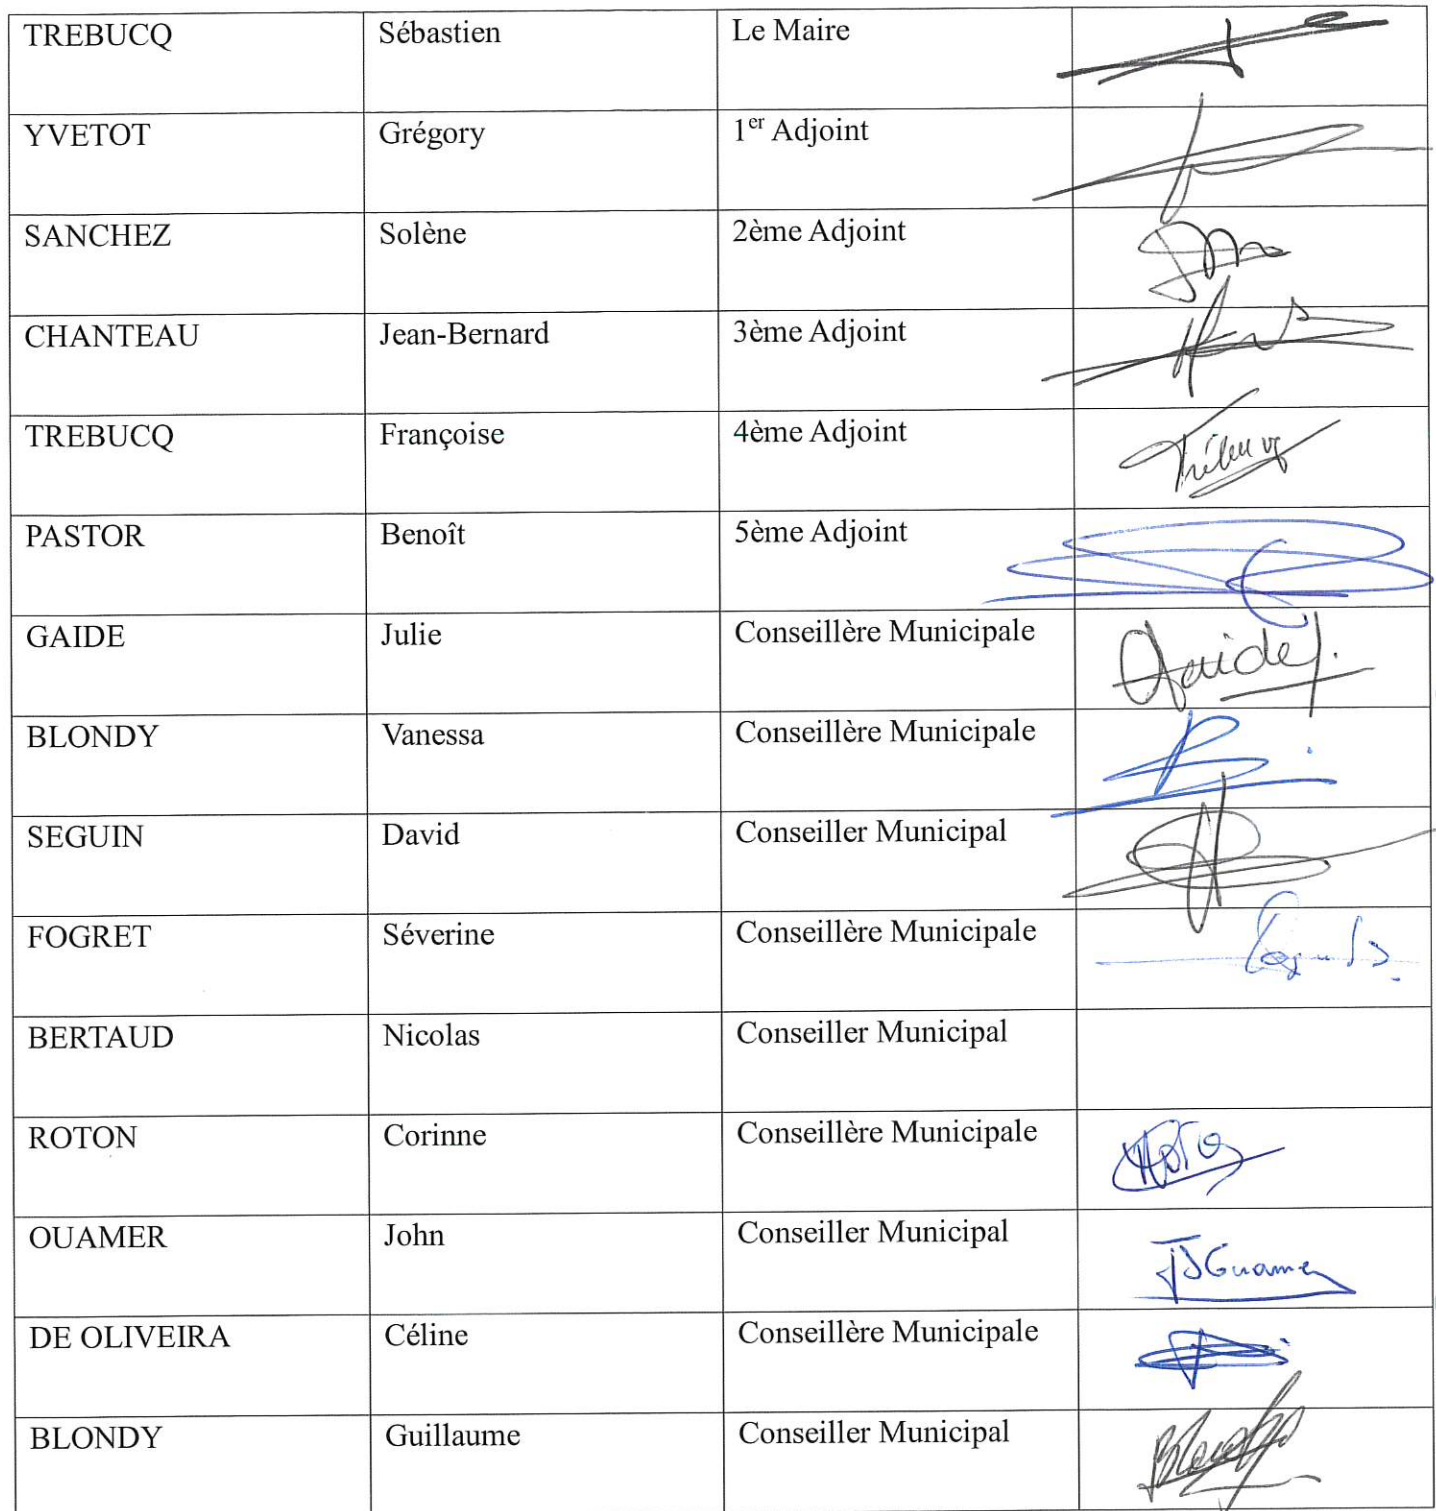 TREBUCQ Sébastien Le Maire
YVETOT Grégory 1er Adjoint
SANCHEZ Solène 2ème Adjoint
CHANTEAU Jean-Bernard 3ème Adjoint
TREBUCQ Françoise 4ème Adjoint
PASTOR Benoît 5ème Adjoint
GAIDE Julie Conseillère Municipale
BLONDY Vanessa Conseillère Municipale
SEGUIN David Conseiller Municipal
FOGRET Séverine Conseillère Municipale
BERTAUD Nicolas Conseiller Municipal
ROTON Corinne Conseillère Municipale
OUAMER John Conseiller Municipal
DE OLIVEIRA Céline Conseillère Municipale
BLONDY Guillaume Conseiller Municipal